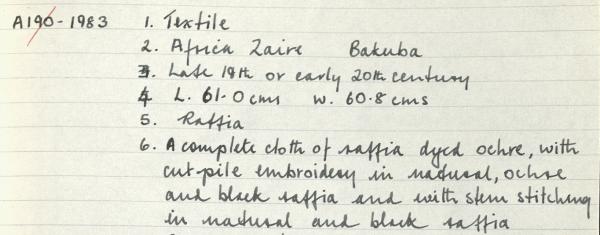 A190-1983 1. Textile
2. Africa Zaire Bakuba
3. Late 19th or early 20th century
4 L. 61.0 cms w. 60.8 cms
5. Raffia
6. A complete cloth of raffia dyed ochre, with
cut-pile embroidery in natural, ochre
and black raffia and with stem stitching
in natural and black raffia